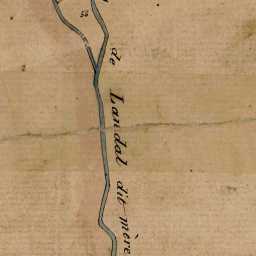 52
de Landal dit mère